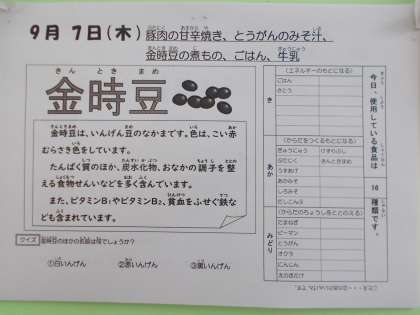 9月 7日(木) 豚肉の甘辛焼き、とうがんのみそ汁、
金時豆の煮もの、ごはん、牛乳
きん とき まめ
金時豆
金時豆は、いんげん豆のなかまです。色は、こい赤
むらさき色をしています。
たんぱく質のほか、炭水化物、おなかの調子を整
える食物せんいなどを多く含んでいます。
また、ビタミンB1やビタミンB2、貧血をふせぐ鉄な
ども含まれています。
クイズ 金時豆のほかの名前は何でしょうか?
①白いんげん ②赤いんげん ③黒いんげん
今日、使用している食品は 16 種類です。
き
(エネルギーのもとになる)
ごはん
さとう
あか
(からだをつくるもとになる)
ぎゅうにゅう
ぶたにく きんときまめ
うすあげ
あかみそ
しろみそ
みどり
(からだのちょうしをととのえる)
たまねぎ
ピーマン
とうがん
にんじん
えのきだけ